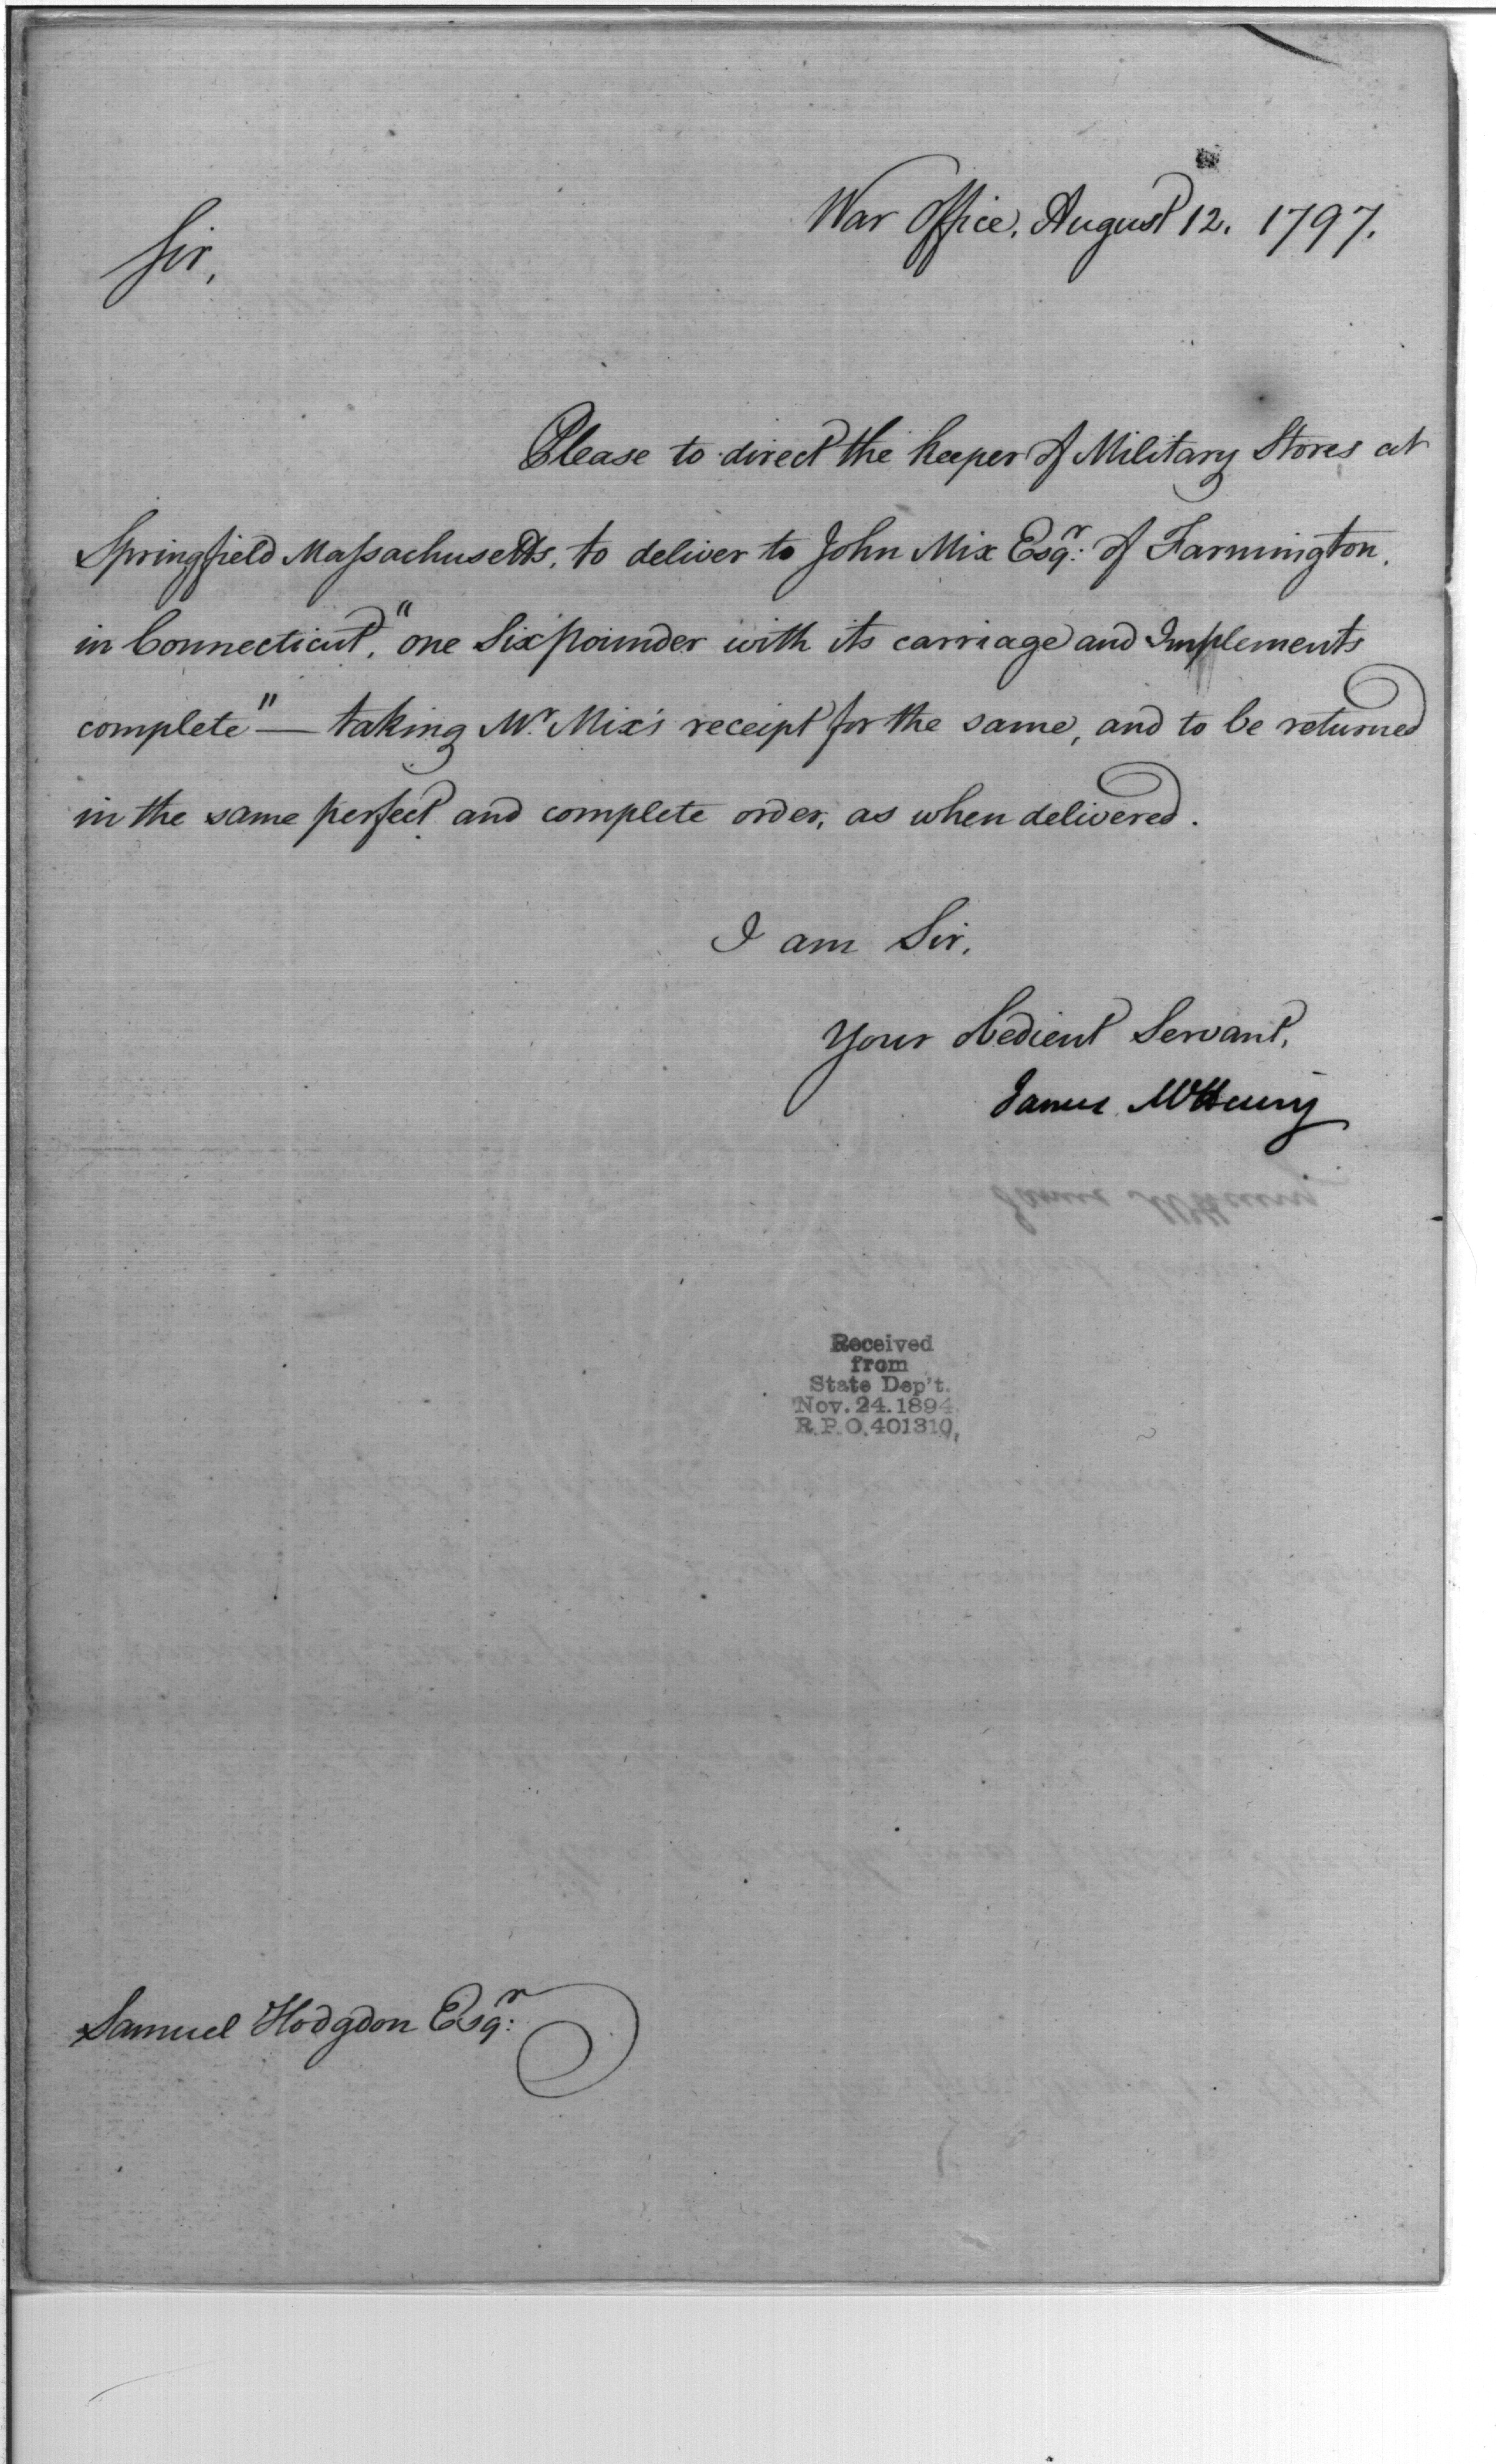 War Office, August 12. 1797.
Sir,
Please to direct the keeper of Military Stores at
Springfield Massachusetts, to deliver to John Mix Esqr: of Farmington,
in Connecticut, "one Six pounder with its carriage and Implements
complete" — taking Mr. Mix's receipt for the same, and to be returned
in the same perfect and complete order, as when delivered.
I am Sir,
Your obedient Servant,
James McHenry
Received
from
State Dep't.
Nov. 24. 1894.
R.P.O. 401310,
Samuel Hodgdon Esqr: